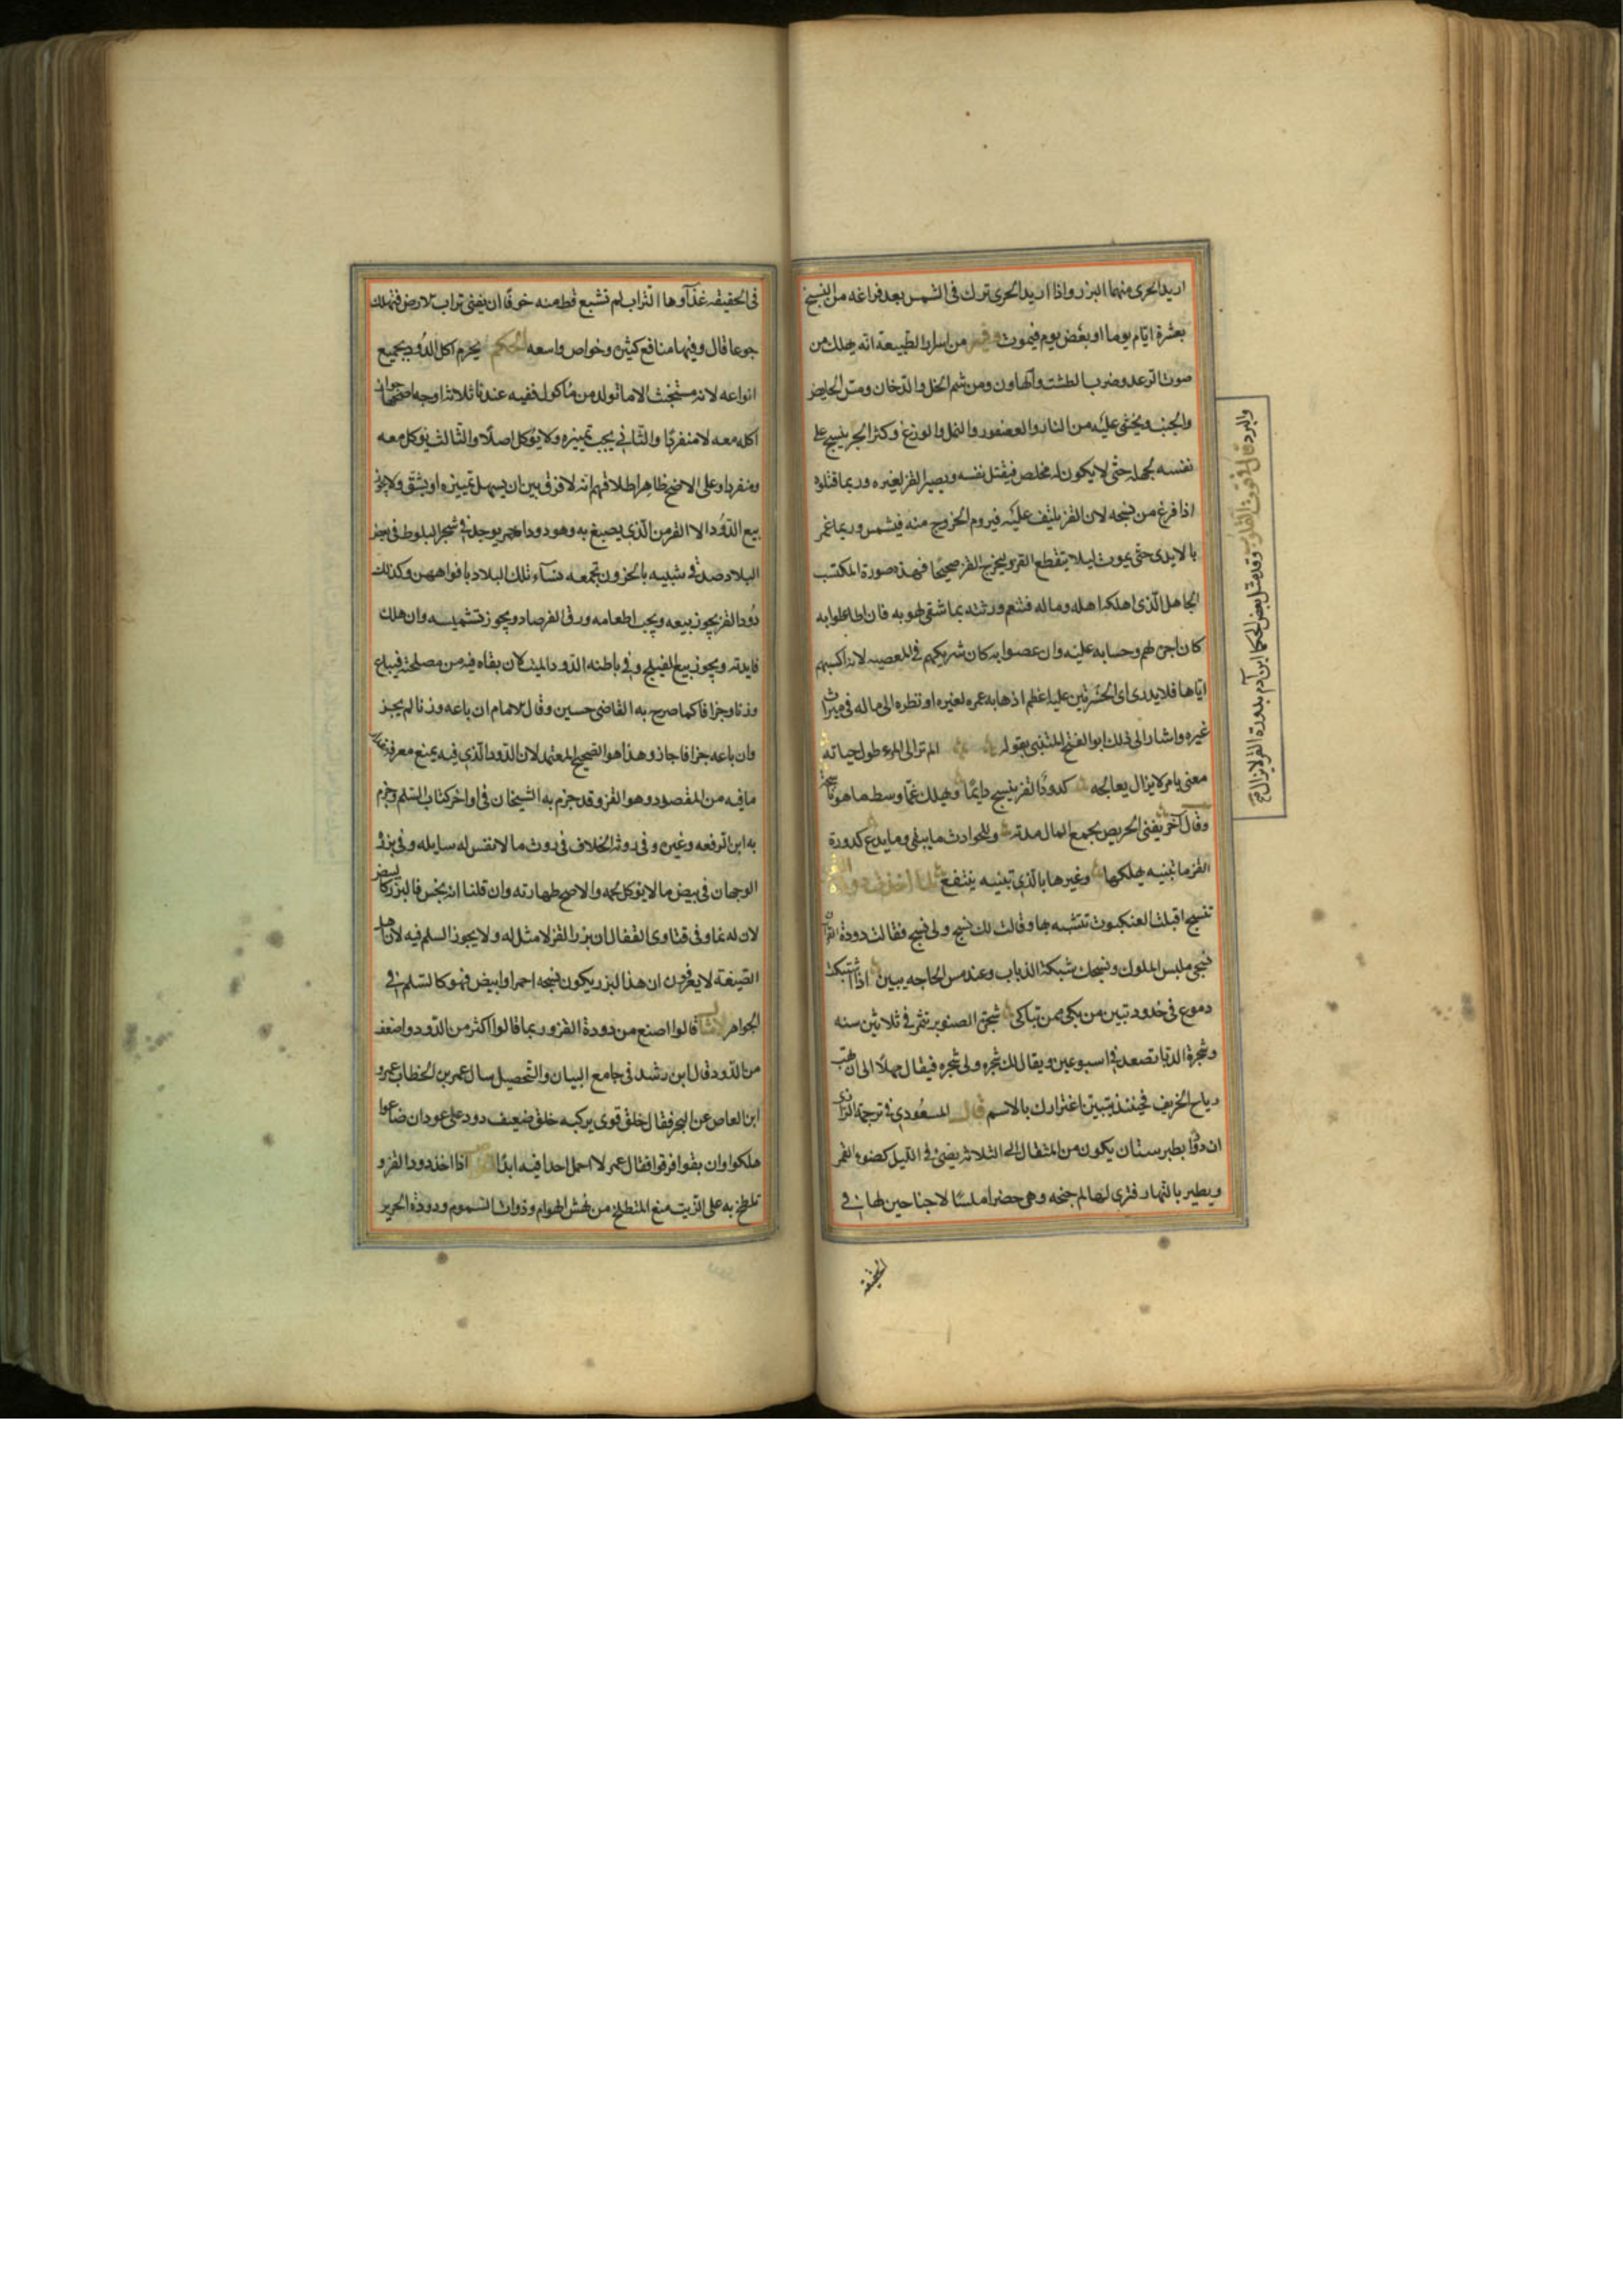 اريد الحرى منهما البزر واذا اريد الحرى ترك فى الشمس بعد فراغه من النسج
بعشرة ايام يوما او بعض يوم فيموت وفيه من اسرار الطبيعة انه يهلك من
صوت الرعد وضرب الطشت والهاون ومن شم الخل والدخان ومس الحايض
والجنب ويخشى عليه من الفار والعصفور والنمل والوزغ وكثر الحر ينسج على
نفسه بجهله حتى لا يكون له مخلص فيقتل نفسه ويصير القز لغيره وربما قتلوه
اذا فرغ من نسجه لان القز يلتف عليه فيروم الخروج منه فيشمس وربما غمز
بالايدى حتى يموت ليلا يتقطع القز ويخرج القز صحيحا فهذه صورة المكتسب
الجاهل الذى اهلكه اهله وماله فتنعم ورثته بما شقى هو به فان اطاعوا به
كان اجره لهم وحسابه عليه وان عصوا به كان شريكهم فى المعصية لانه اكسبهم
اياها فلا يدرى اى الحسرتين عليه اعظم اذهابه عمره لغيره او نظره الى ماله فى ميزان
غيره واشار الى ذلك ابو الفتح البستى بقوله الم تر الى المرء طول حياته
معنى بامر لا يزال يعالجه كدود القز ينسج دايما ويهلك غما وسط ما هو ناسجه
وقال آخر يفنى الحريص بجمع المال مدته وللحوادث ما يبقى وما يدع كدودة
القز ما تبنيه يهلكها وغيرها بالذى تبنيه ينتفع لما اخذت دودة
تنسج اقبلت العنكبوت تتشبه بها وقالت لك نسج ولى نسج فقالت دودة القز ان
نسجى ملبس الملوك ونسجك شبكة الذباب وعند مس الحاجه يبين اذا اشتبكت
دموع فى خدود تبين من بكى ممن تباكى شجرة الصنوبر تثمر فى ثلاثين سنه
وشجرة الدبا تصعد فى اسبوعين ويقال لك شجره ولى شجره فيقال مهلا الى ان تهب
رياح الخريف فحينئذ يتبين اغترارك بالاسم قال المسعودى فى ترجمة الراضى
ان دودا بطبرستان يكون من المثقال الى الثلاثه يضئ فى الليل كضوء القمر
ويطير بالنهار فترى لها لم جنحه وهى خضرا ملسا لا جناحين لها فى
الحقيقة
والبرد قال فى قوت القلوب وقد مثل بعض الحكما ابن آدم بدودة القز لا يزال
فى الحقيقه غذآوها التراب لم تشبع قط منه خوفا ان يفنى تراب الارض فتهلك
جوعا قال وفيها منافع كثيره وخواص واسعه الحكم يحرم اكل الدود بجميع
انواعه لانه مستخبث الا ما تولد من مأكول ففيه عندنا ثلاثه اوجه اصحها جواز
اكله معه لا منفردا والثانى يجب تمييزه ولا يؤكل اصلا والثالث يوكل معه
ومنفردا وعلى الاصح ظاهر اطلاقهم انه لا فرق بين ان يسهل تمييزه او يشق ولا يجوز
بيع الدود الا القرمز الذى يصبغ به وهو دود احمر يوجد فى شجر البلوط فى بعض
البلاد صدفى شبيه بالحزون تجمعه نسآء تلك البلاد بافواههن وكذلك
دود القز يجوز بيعه ويجب اطعامه ورق الفرصاد ويجوز تشميسه وان هلك
فايدته ويجوز بيع الفيلج وفى باطنه الدود الميت لان بقاه فيه من مصلحته فيباع
وزنا وجزافا كما صرح به القاضى حسين وقال الامام ان باعه وزنا لم يجز
وان باعه جزافا جاز وهذا هو الصحيح المعتمد لان الدود الذى فيه يمنع معرفة
ما فيه من المقصود وهو القز وقد جزم به الشيخان فى اواخر كتاب السلم وجزم
به ابن الرفعه وغيره وفى روثه الخلاف فى روث ما لا نفس له سايله وفى بزره
الوجهان فى بيض ما لا يوكل لحمه والاصح طهارته وان قلنا انه نجس فالبزر كالبيض
لان له نما وفى فتاوى القفال ان بزر القز لا مثل له ولا يجوز السلم فيه لان اهل
الصنعة لا يعرفون ان هذا البزر يكون نسجه احمر او ابيض فهو كالسلم فى
الجواهر الامثال قالوا اصنع من دودة القز وربما قالوا اكثر من الدود واضعف
من الدود قال ابن رشد فى جامع البيان والتحصيل سال عمر بن الخطاب عمرو
ابن العاص عن البحر فقال خلق قوى يركبه خلق ضعيف دود على عود ان ضاعوا
هلكوا وان بقوا فرقوا فقال عمر لا احمل احدا فيه ابدا الخواص اذا اخذ دود القز و
تلطخ به على الزيت منع المتطلخ من نهش الهوام وذوات السموم ودودة الحرير